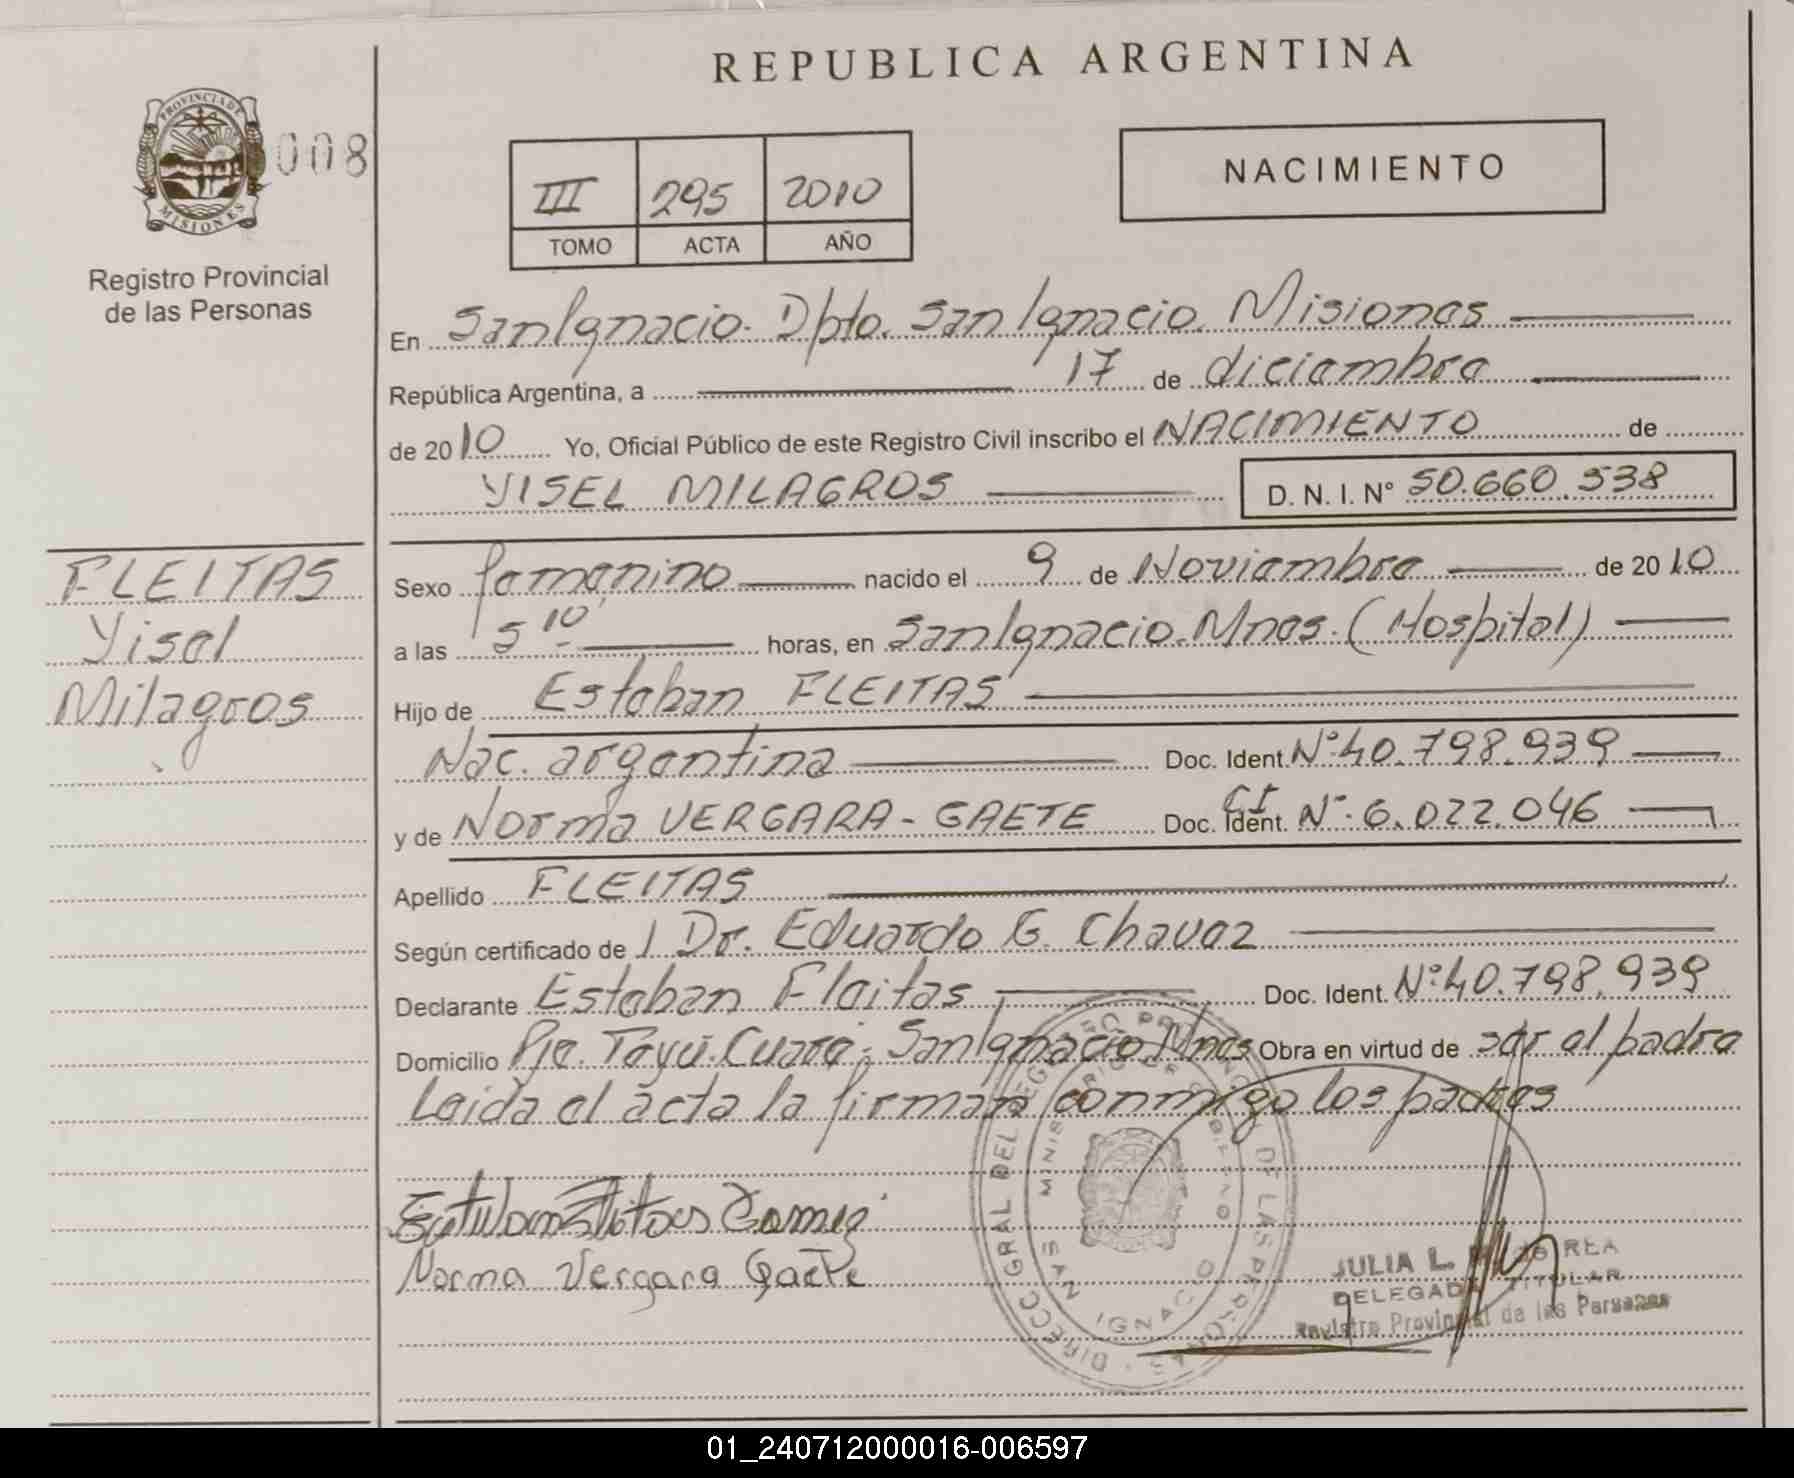 REPUBLICA ARGENTINA
PROVINCIA DE
MISIONES
008
Registro Provincial
de las Personas
III 295 2010
TOMO ACTA AÑO
NACIMIENTO
En San Ignacio. Dpto. San Ignacio. Misiones
República Argentina, a 17 de diciembre
de 2010 Yo, Oficial Público de este Registro Civil inscribo el NACIMIENTO de
YISEL MILAGROS D. N. I. Nº 50.660.538
FLEITAS
Yisel
Milagros
Sexo femenino nacido el 9 de Noviembre de 2010
a las 5 10' horas, en San Ignacio. Mnes. (Hospital)
Hijo de Esteban FLEITAS
Nac. argentina Doc. Ident Nº 40.798.939
y de Norma VERGARA - GAETE Doc. Ident. CI Nº 6.022.046
Apellido FLEITAS
Según certificado de 1 Dr. Eduardo G. Chavez
Declarante Esteban Fleitas Doc. Ident. Nº 40.798.939
Domicilio Pje. Teyú Cuaré - San Ignacio Mnes Obra en virtud de ser el padre
Leida el acta la firman conmigo los padres
Esteban Fleitas Gomez
Norma Vergara Gaete
DIRECC GRAL DEL REGISTRO PROVINCIAL DE LAS PERSONAS
MINISTERIO DE GOBIERNO
SAN IGNACIO
JULIA L.
DELEGADA TITULAR
Registro Provincial de las Personas
01_240712000016-006597